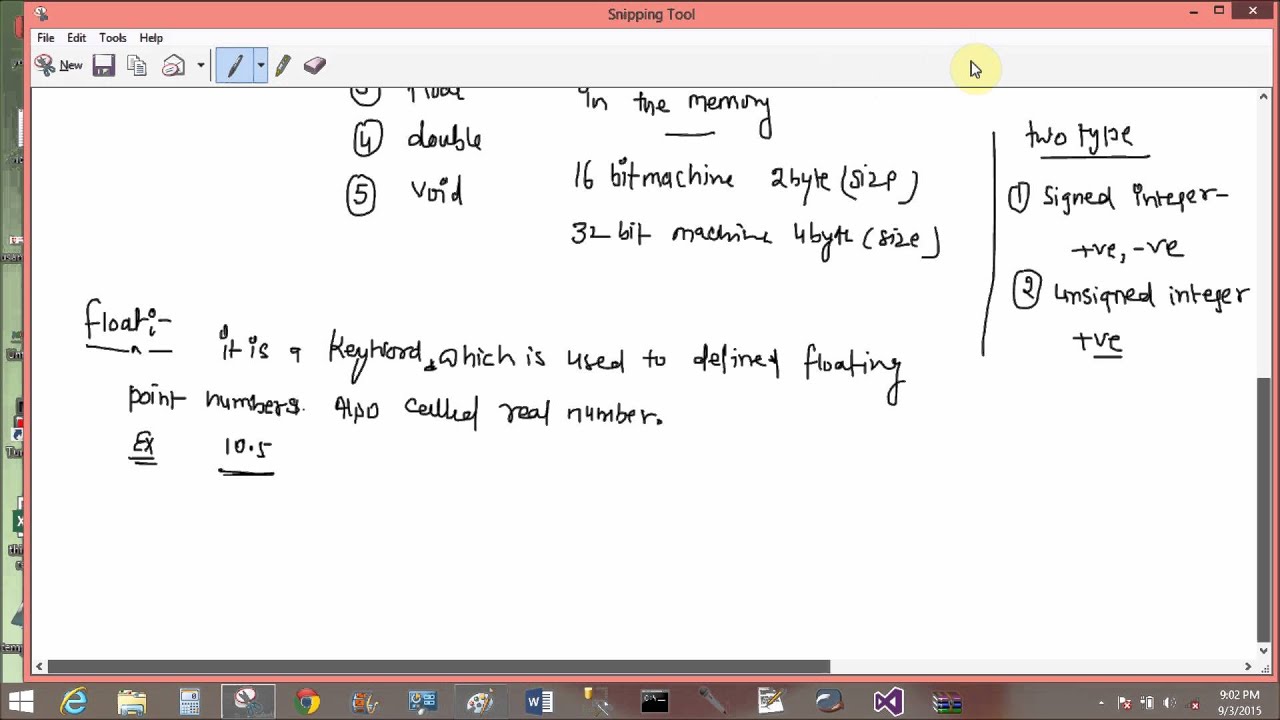 Snipping Tool
File Edit Tools Help
New
③ float
in the memory
④ double
16 bit machine 2 byte (size)
⑤ void
32 bit machine 4 byte (size)
two type
① Signed integer -
+ve, -ve
② unsigned integer
+ve
float :-
it is a keyword, which is used to defined floating
point numbers. Also called real number.
Ex 10.5
9:02 PM
9/3/2015